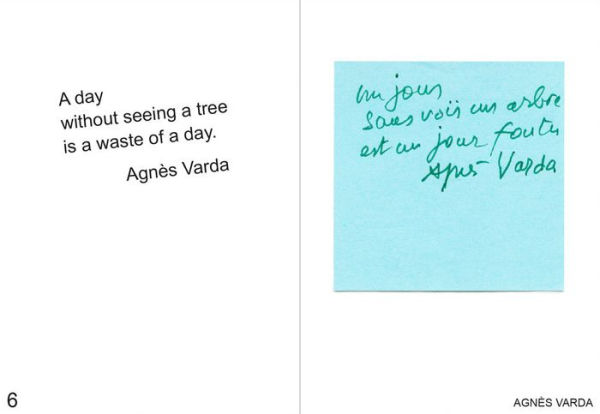 A day
without seeing a tree
is a waste of a day.
Agnès Varda
un jour
sans voir un arbre
est un jour foutu
Agnès Varda
6
AGNÈS VARDA